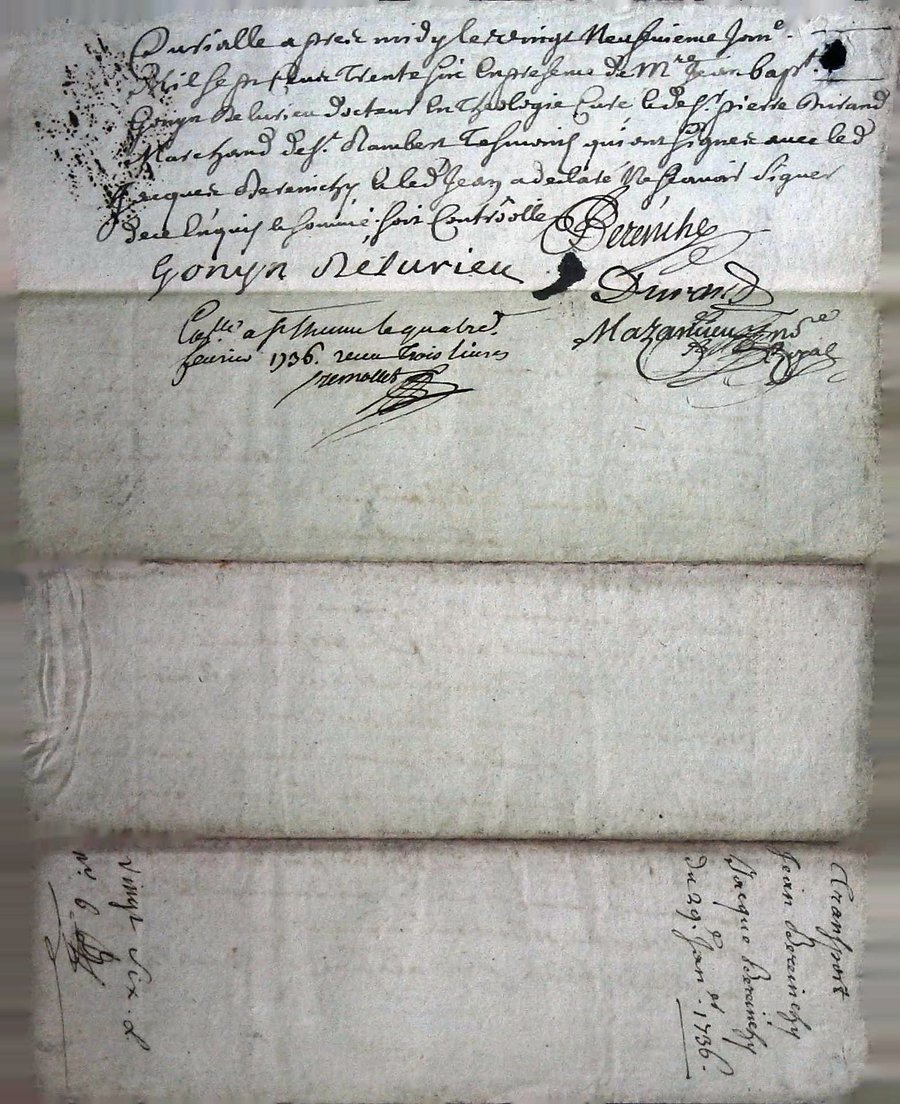 Curialle apres midy le vingt neufvieme Janr.
Mil sept cent trente six en presence de Mre Jean bapt.
Gonyn Delurieu docteur en Theologie Curé et de Sr. pierre Durand
Marchand de St. Rambert Tesmoins qui ont signes avec led
Jacques Bereinchy et led Jean a declaré ne scavoir signer
de ce enquis et sommé. soit Controolle
Berenche
Gonyn Délurieu
Durand
Mazancieux nore
Royal
Collé a st. le quatre
fevrier 1736. receu Trois livres
Transport
Jean Bereinchy
et
Jacque Bereinchy
du 29e. Janr. 1736.
vingt six. L
no. 6.